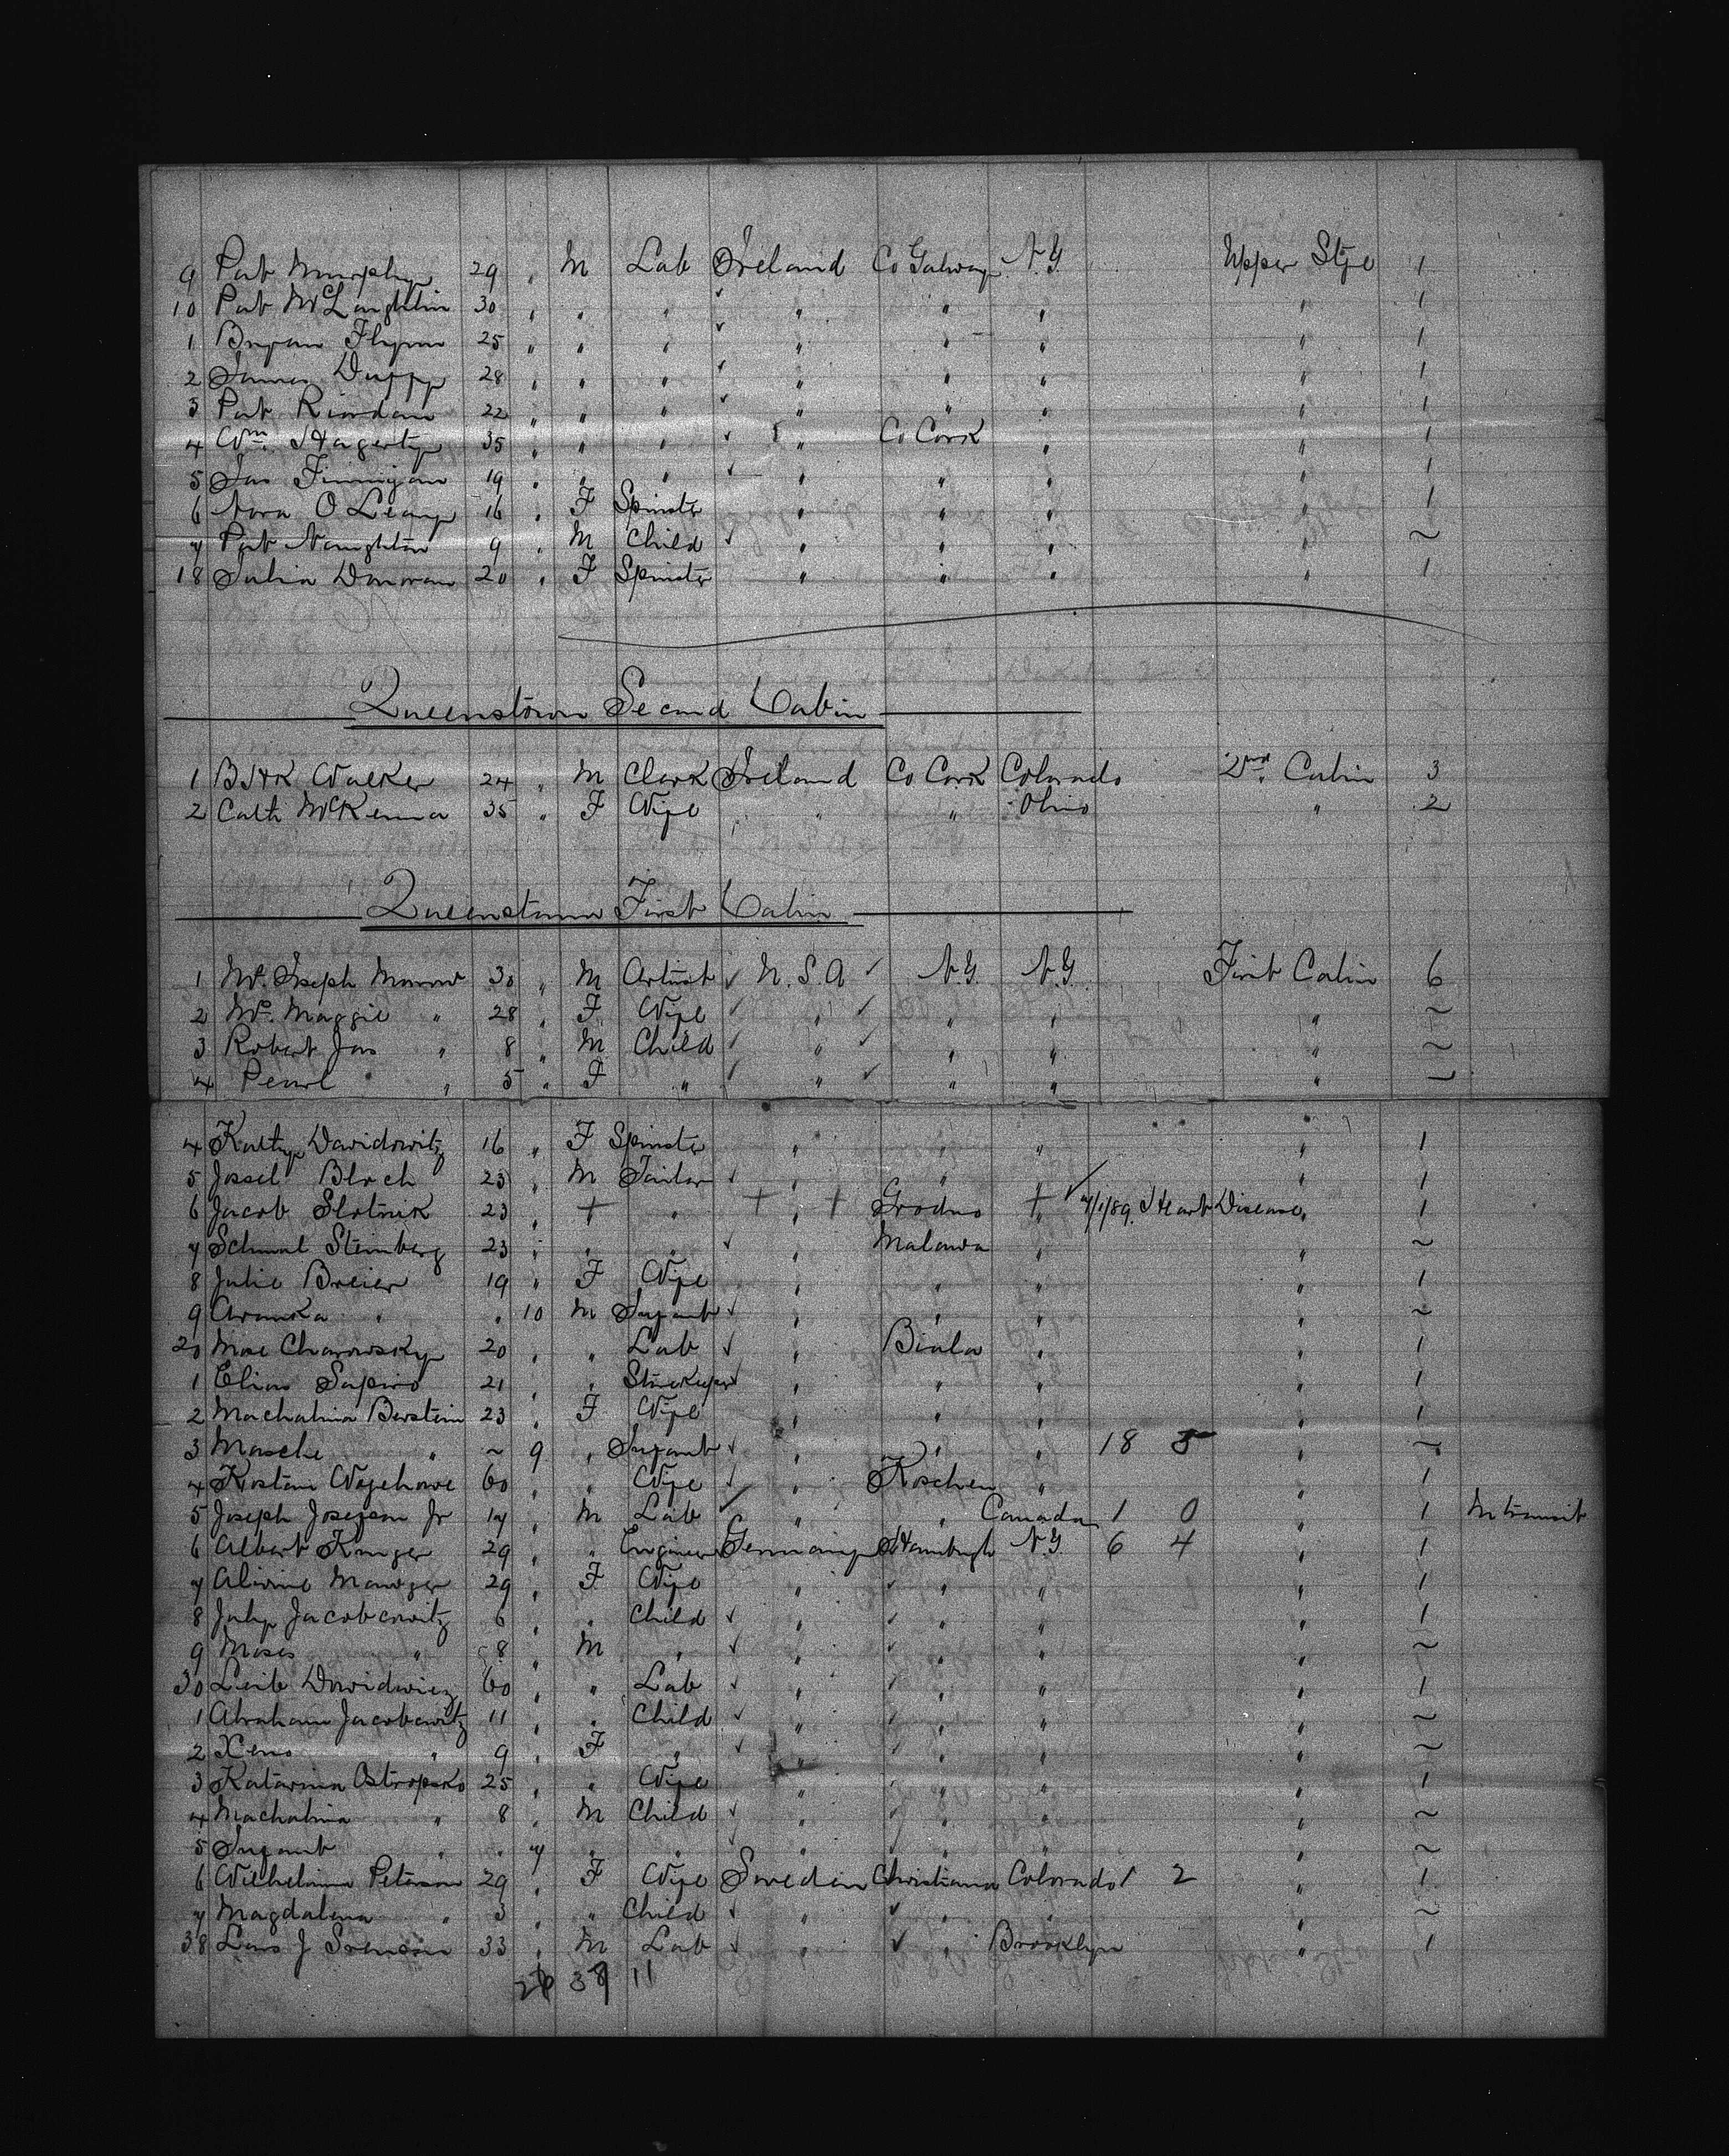 9 Pat Murphy 29 " M Lab Ireland Co Galway N.Y. Upper Stge 1
10 Pat McLaughlin 30 " " " " " " " 1
1 Bryan Flynn 25 " " " " " " " 1
2 James Duffy 28 " " " " " " " 1
3 Pat Riordan 22 " " " " " " " 1
4 Wm. Hagerty 35 " " " " Co Cork " " 1
5 Jas Finnigan 19 " " " " " " " 1
6 Nora O Leary 16 " F Spinster " " " " 1
7 Pat Naughton 9 " M Child " " " " ~
18 Julia Donovan 20 " F Spinster " " " " 1
Queenstown Second Cabin
1 B H K Walker 24 " M Clerk Ireland Co Cork Colorado 2nd Cabin 3
2 Cath McKenna 35 " F Wife " " Ohio " 2
Queenstown First Cabin
1 Mr. Joseph Morrow 30 " M Artist U.S.A N.Y. N.Y. First Cabin 6
2 Mrs. Maggie " 28 " F Wife " " " " ~
3 Robert Jas " 8 " M Child " " " " ~
4 Pearl " 5 " F " " " " " ~
4 Kathy Davidowitz 16 " F Spinster " " " " 1
5 Jossel Bloch 23 " M Tailor " " " " 1
6 Jacob Slotnik 23 " + " + " + Grodno + 4/1/89. Heart Disease " 1
7 Schmul Steinberg 23 " " " " Malowa " " ~
8 Julie Breier 19 " F Wife " " " " 1
9 Aranka " " 10 M Infant " " " " ~
20 Mose Charowsky 20 " " Lab " Biala " " 1
1 Elias Sapiro 21 " " Storekeeper " " " " 1
2 Machalina Berstein 23 " F Wife " " " " 1
3 Masche " ~ 9 " Infant " " " 18 5 " ~
4 60 " " Wife " Koschen " " 1
5 Joseph Josefson Jr 17 " M Lab " " Canada 1 0 " 1 In transit
6 Albert Kruger 29 " " Engineer Germany Hamburgh N.Y. 6 4 " 1
7 Alivine 29 " F Wife " " " " 1
8 July Jacobcowitz 6 " " Child " " " " 1
9 Moses " 8 " M " " " " " ~
30 Leib Davidwicz 60 " " Lab " " " " 1
1 Abraham Jacobcowitz 11 " " Child " " " " ~
2 Xeno " 9 " F " " " " " ~
3 Katarina 25 " " Wife " " " " 1
4 Machalina " 8 " M Child " " " " ~
5 Infant " " 7 " " " " " " ~
6 Wilhelmina Peterson 29 " F Wife Sweden Christiana Colorado 1 2 " 1
7 Magdalena " 3 " " Child " " " " ~
38 Lars J Svenson 33 " M Lab " " Brooklyn " 1
11